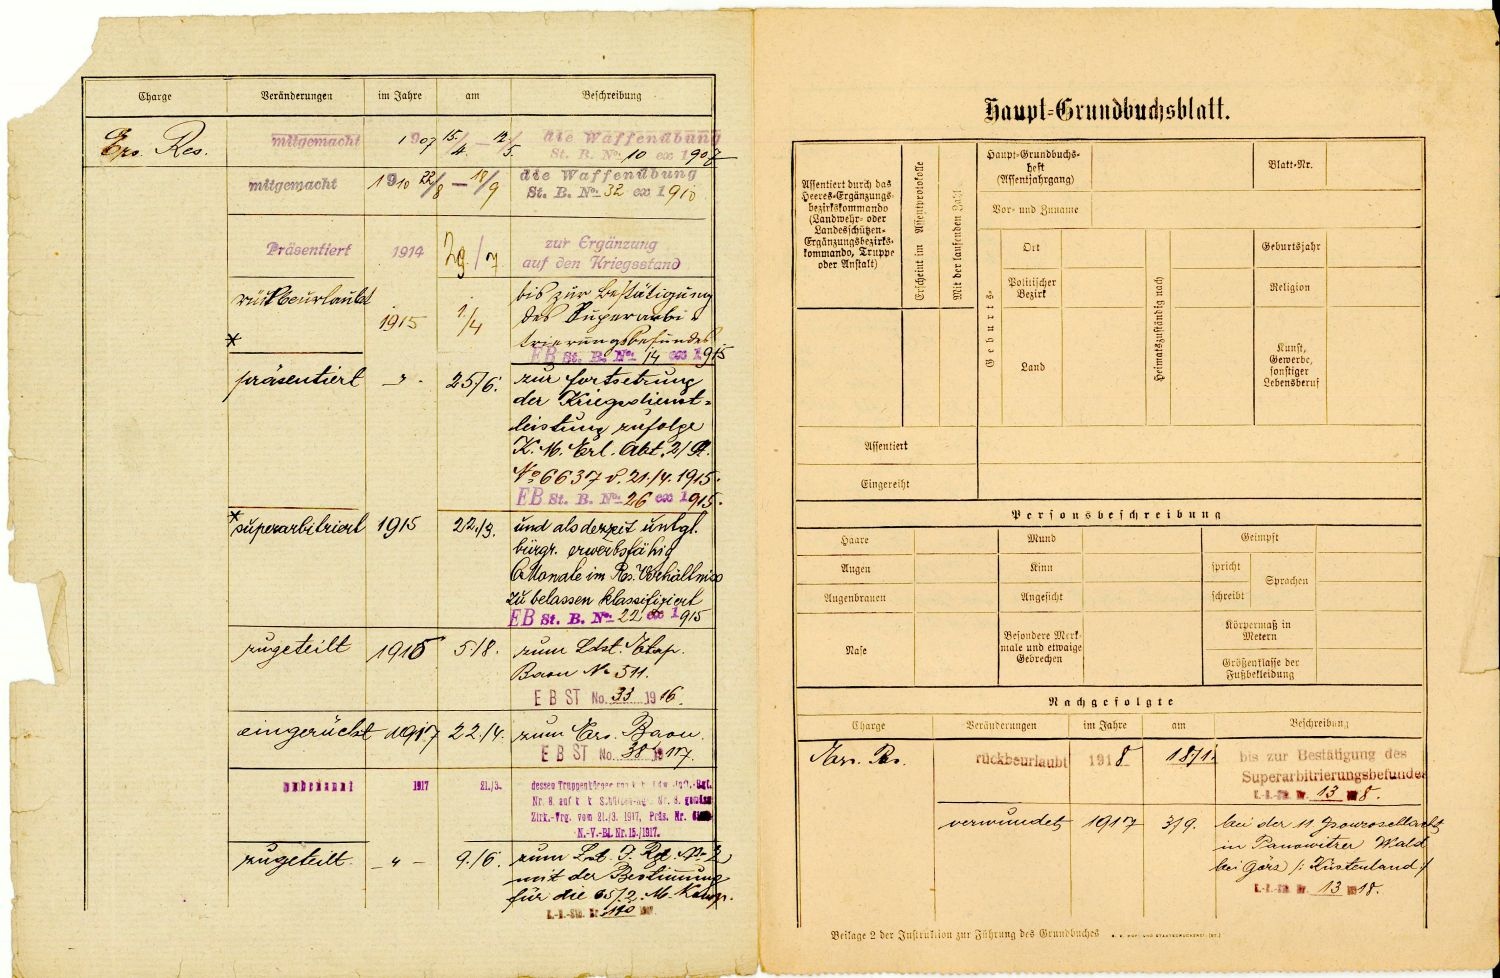 Charge Veränderungen im Jahre am Beschreibung
Ers. Res. mitgemacht 1907 15./4. — 12/5. die Waffenübung
St. B. No. 10 ex 1907
mitgemacht 1910 22/8 — 18/9 die Waffenübung
St. B. No. 32 ex 1910
Präsentiert 1914 29/7 zur Ergänzung
auf den Kriegsstand
rückbeurlaubt 1915 1./4 bis zur Bestätigung
des Superarbi-
trierungsbefundes
* EB St. B. No. 14 ex 1915
präsentiert — " - 25/6. zur Fortsetzung
der Kriegsdienst-
leistung zufolge
K. M. Erl. Abt. 2/
No 6637 v. 21./4. 1915.
EB St. B. No. 26 ex 1915.
* superarbitriert 1915 22./9. und als derzeit untgl.
bürgr. erwerbsfähig
Monate im Res. Verhältniss
zu belassen klassifiziert
EB St. B. No. 22 ex 1915
zugeteilt 1916 5./8. zum Ldst. Etap.
Baon No 511.
E B ST No. 33 1916.
eingerückt 1917 22./4. zum Ers. Baon.
E B ST No. 38 1917.
1917 21./3. dessen Truppenkörper
Nr. 8 auf k. k. Nr. 8
Zirk.-Vrg. vom 21./3. 1917, Präs. Nr.
N.-V.-Bl. Nr. 15./1917.
zugeteilt. — " — 9./6. zum
mit der Bestimmung
für die 65/2. M. Komp.
190
Haupt-Grundbuchsblatt.
Assentiert durch das
Heeres-Ergänzungs-
bezirkskommando
(Landwehr- oder
Landesschützen-
Ergänzungsbezirks-
kommando, Truppe
oder Anstalt)
Erscheint im Assentprotokolle
Mit der laufenden Zahl
Haupt-Grundbuchs-
heft
(Assentjahrgang)
Blatt-Nr.
Vor- und Zuname
Geburts-
Ort
Politischer
Bezirk
Land
Heimatszuständig nach
Geburtsjahr
Religion
Kunst,
Gewerbe,
sonstiger
Lebensberuf
Assentiert
Eingereiht
Personsbeschreibung
Haare Mund Geimpft
Augen Kinn spricht Sprachen
Augenbrauen Angesicht schreibt
Nase Besondere Merk-
male und etwaige
Gebrechen
Körpermaß in
Metern
Größenklasse der
Fußbekleidung
Nachgefolgte
Charge Veränderungen im Jahre am Beschreibung
Ers. Res. rückbeurlaubt 1918 18/1. bis zur Bestätigung des
Superarbitrierungsbefundes
13 18.
verwundet 1917 3/9. bei der 11. Isonzoschlacht
in Panowitzer Wald
bei Görz /: Küstenland :/
13 18.
Beilage 2 der Instruktion zur Führung des Grundbuches